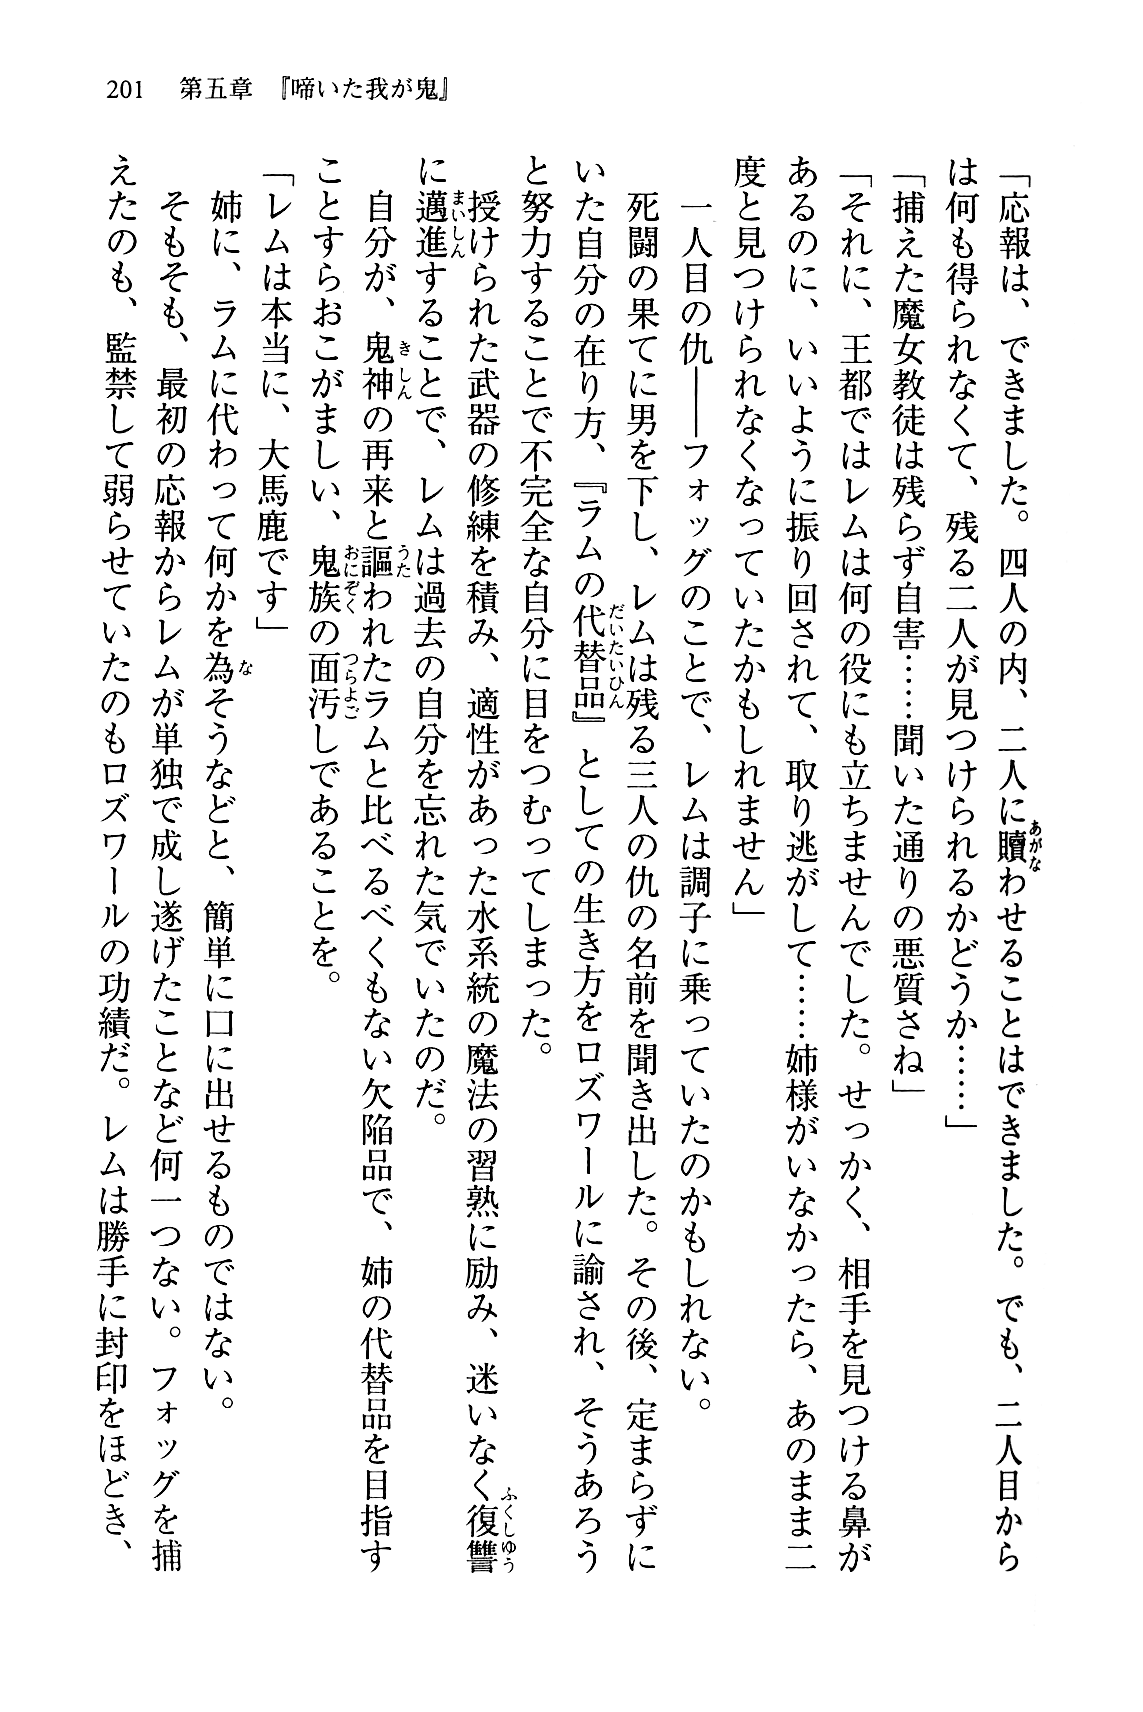 201　第五章　『啼いた我が鬼』
「応報は、できました。四人の内、二人に贖わせることはできました。でも、二人目から
は何も得られなくて、残る二人が見つけられるかどうか……」
「捕えた魔女教徒は残らず自害……聞いた通りの悪質さね」
「それに、王都ではレムは何の役にも立ちませんでした。せっかく、相手を見つける鼻が
あるのに、いいように振り回されて、取り逃がして……姉様がいなかったら、あのまま二
度と見つけられなくなっていたかもしれません」
　一人目の仇――フォッグのことで、レムは調子に乗っていたのかもしれない。
　死闘の果てに男を下し、レムは残る三人の仇の名前を聞き出した。その後、定まらずに
いた自分の在り方、『ラムの代替品』としての生き方をロズワールに諭され、そうあろう
と努力することで不完全な自分に目をつむってしまった。
　授けられた武器の修練を積み、適性があった水系統の魔法の習熟に励み、迷いなく復讐
に邁進することで、レムは過去の自分を忘れた気でいたのだ。
　自分が、鬼神の再来と謳われたラムと比べるべくもない欠陥品で、姉の代替品を目指す
ことすらおこがましい、鬼族の面汚しであることを。
「レムは本当に、大馬鹿です」
　姉に、ラムに代わって何かを為そうなどと、簡単に口に出せるものではない。
　そもそも、最初の応報からレムが単独で成し遂げたことなど何一つない。フォッグを捕
えたのも、監禁して弱らせていたのもロズワールの功績だ。レムは勝手に封印をほどき、